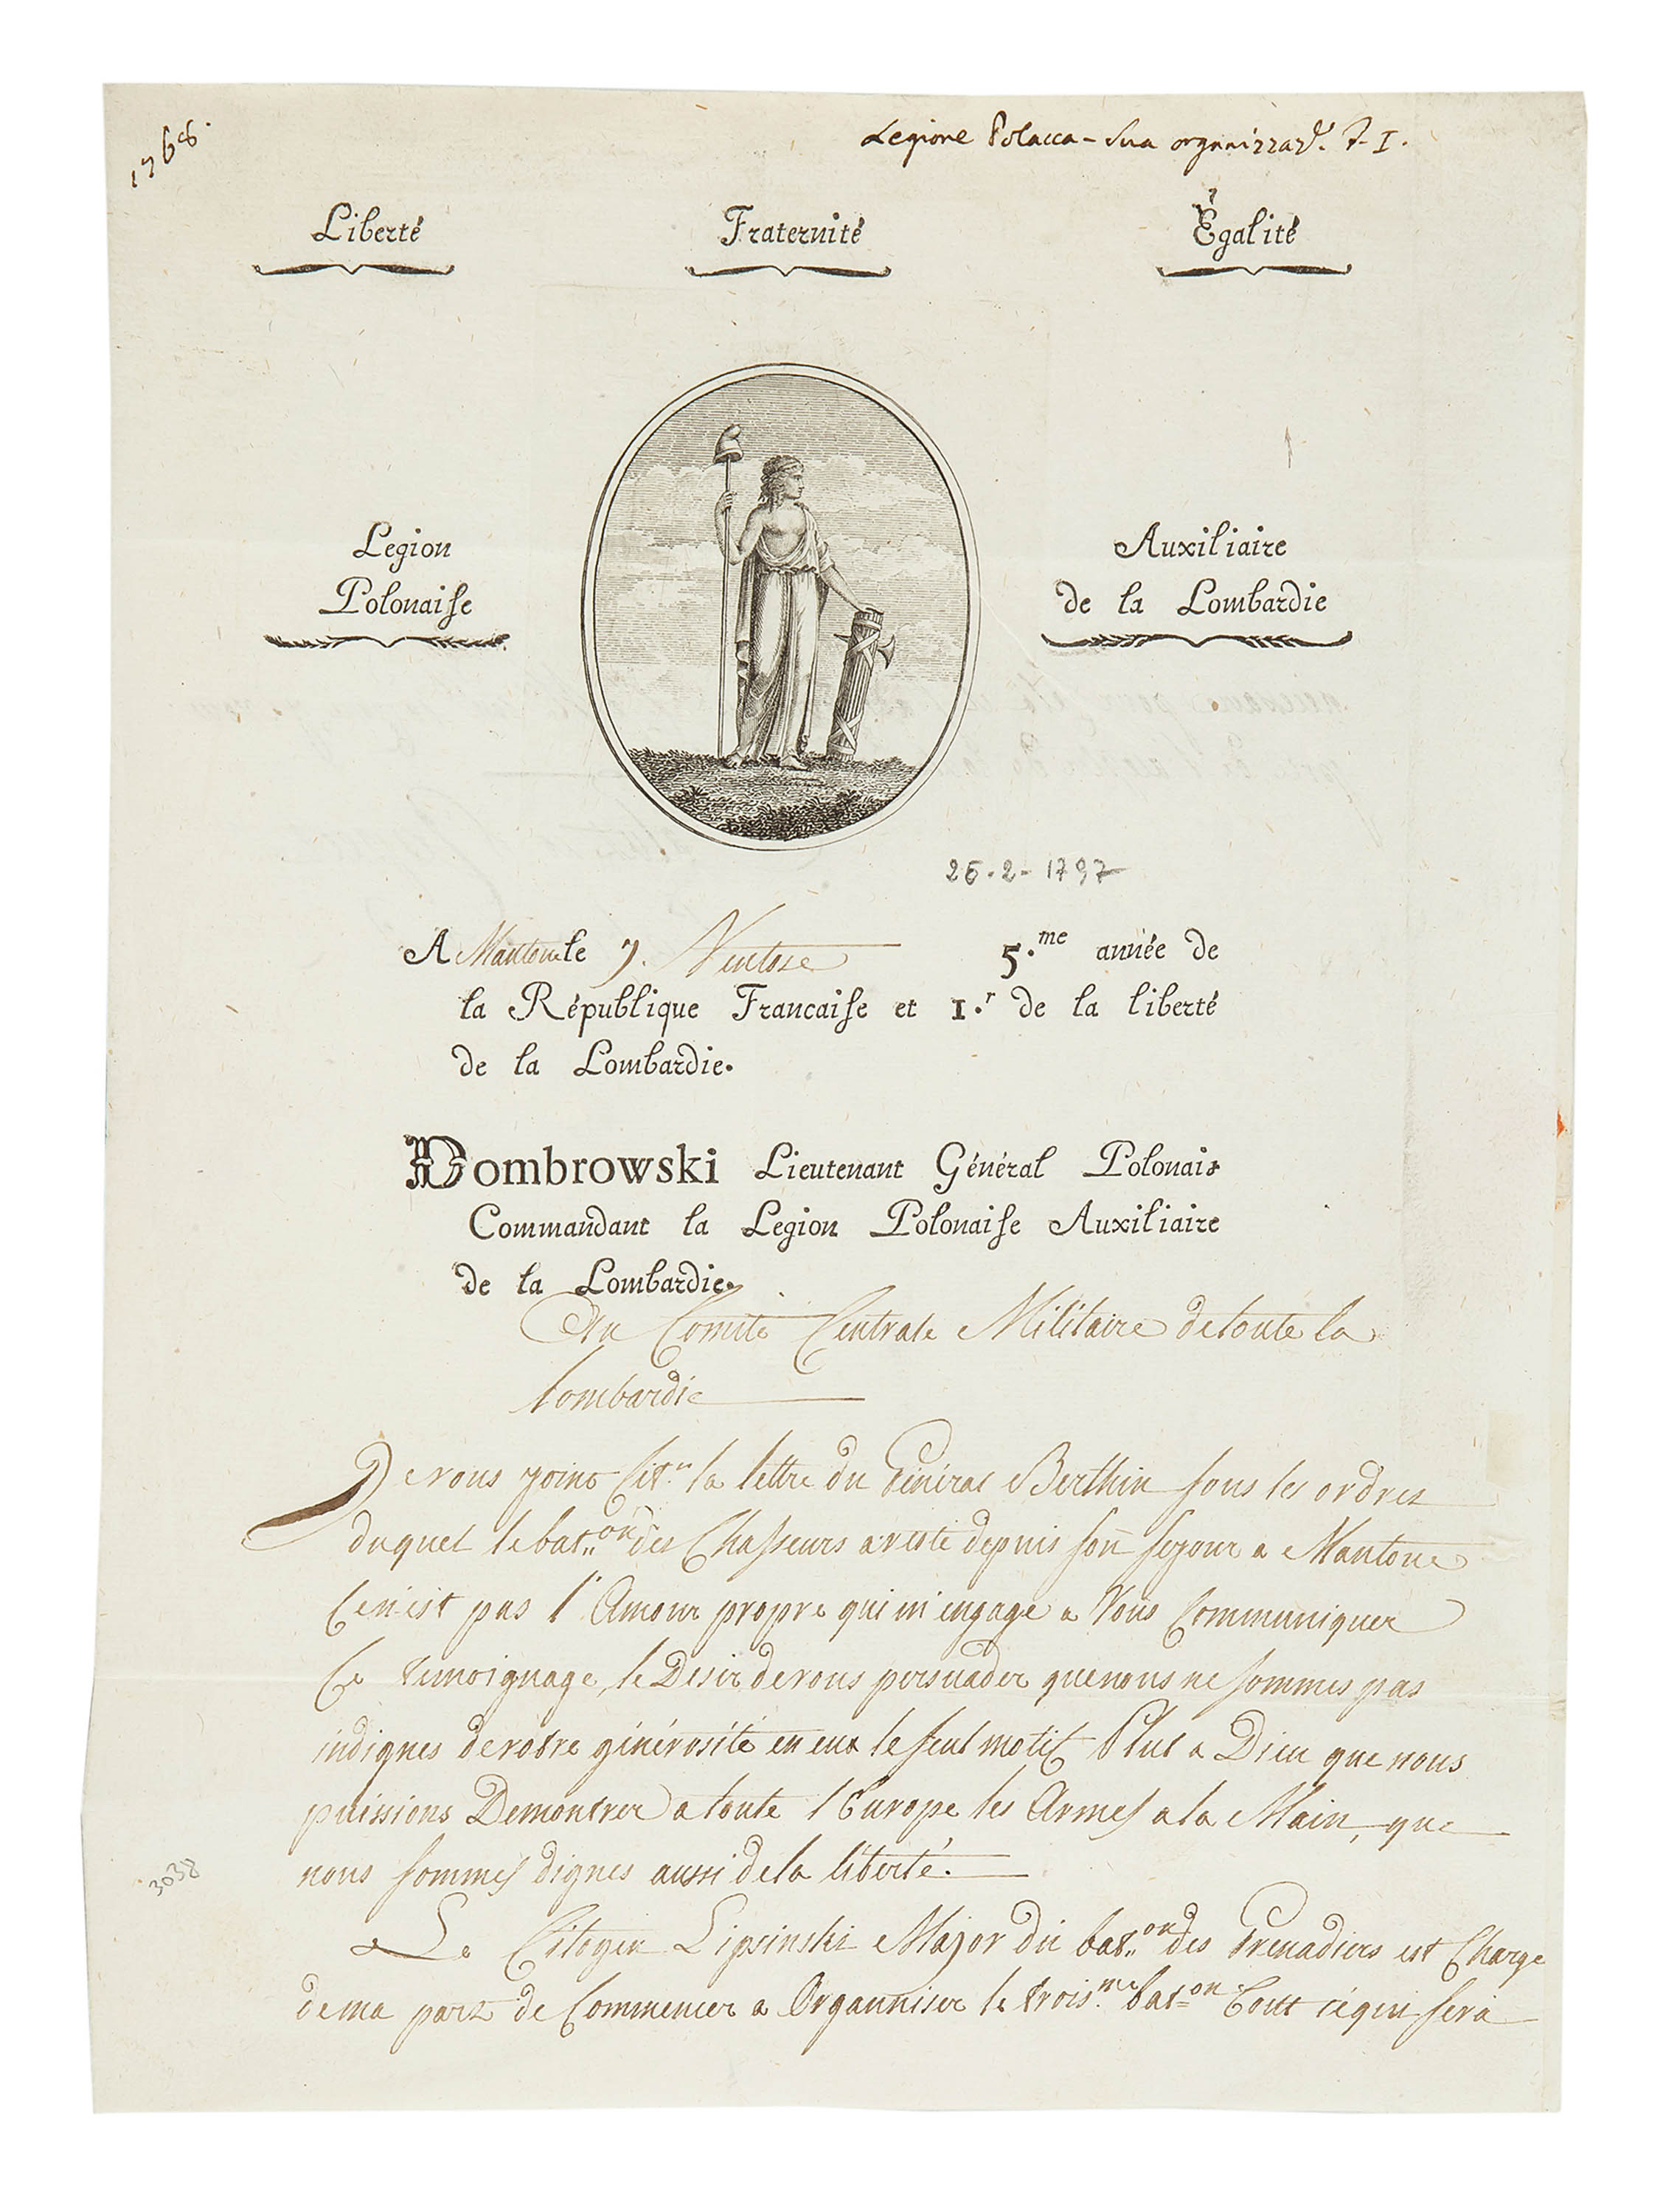 1768.
Legione Polacca - Sua organizzaz.e F. I.
Liberté Fraternité Égalité
Legion Auxiliaire
Polonaise de la Lombardie
26.2-1797
A Mantoue le 7. Ventose 5.me année de
la République Francaise et 1.r de la liberté
de la Lombardie.
Dombrowski Lieutenant Général Polonais
Commandant la Legion Polonaise Auxiliaire
de la Lombardie.
Au Comité Centrale Militaire de toute la
Lombardie
Je vous joint Cit.n la lettre du Général Berthin sous les ordres
duquel le bat.on des Chasseurs a resté depuis son sejour a Mantoue
Ce n'est pas l'Amour propre qui m'engage a Vous Communiquer
Ce temoignage, le Desir de vous persuader que nous ne sommes pas
indignes de votre générosité en eux le seul motif Plut a Dieu que nous
puissions Demontrer a toute l'Europe les Armes a la Main, que
nous sommes dignes aussi de la liberté.
3038
Le Citoyen Lipsinski Major du bat.on des Grenadiers est Charge
de ma part de Commencer a Organniser le trois.me bat.on Tout ce qui sera